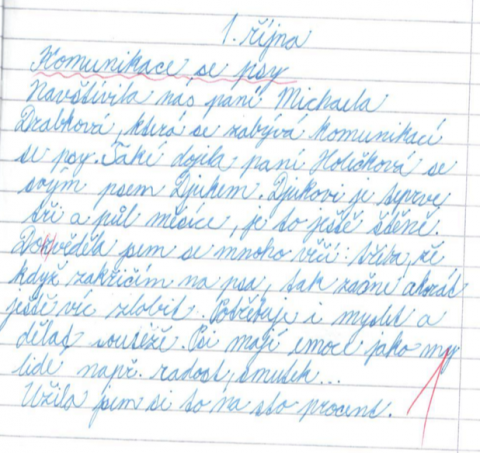 1. října
Komunikace se psy
Navštívila nás paní Michaela
Drabková, která se zabývá komunikací
se psy. Také dojila paní Holičková se
svým psem Djukem. Djukovi je teprve
tři a půl měsíce, je to ještě štěně.
Dozvěděla jsem se mnoho věcí: třeba, že
když zakřičím na psa, tak začne akorát
ještě víc zlobit. Potřebuje i myslet a
dělat soutěže. Psi mají emoce jako my
lidé např. radost, smutek...
Užila jsem si to na sto procent.